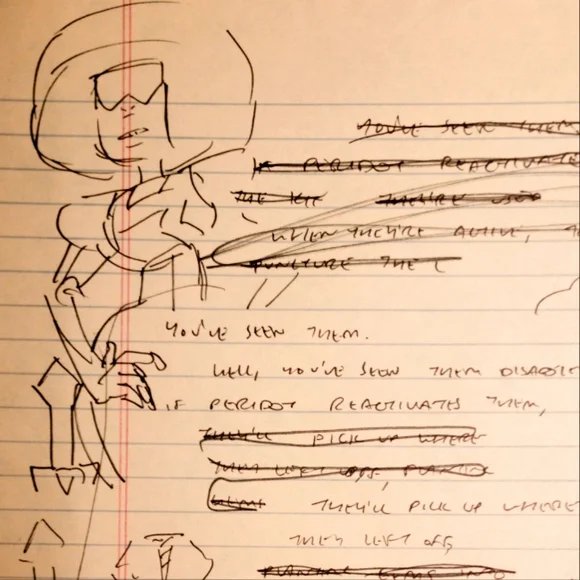 YOU'VE SEEN THEM
IF PERIDOT REACTIVATE
THE KIT THEY'RE USED
WHEN THEY'RE ACTIVE,
PUNCTURE THE
YOU'VE SEEN THEM.
WELL, YOU'VE SEEN THEM
IF PERIDOT REACTIVATES THEM,
THEY'LL PICK UP WHERE
THEY LEFT OFF,
THEY'LL PICK UP WHERE
THEY LEFT OFF,